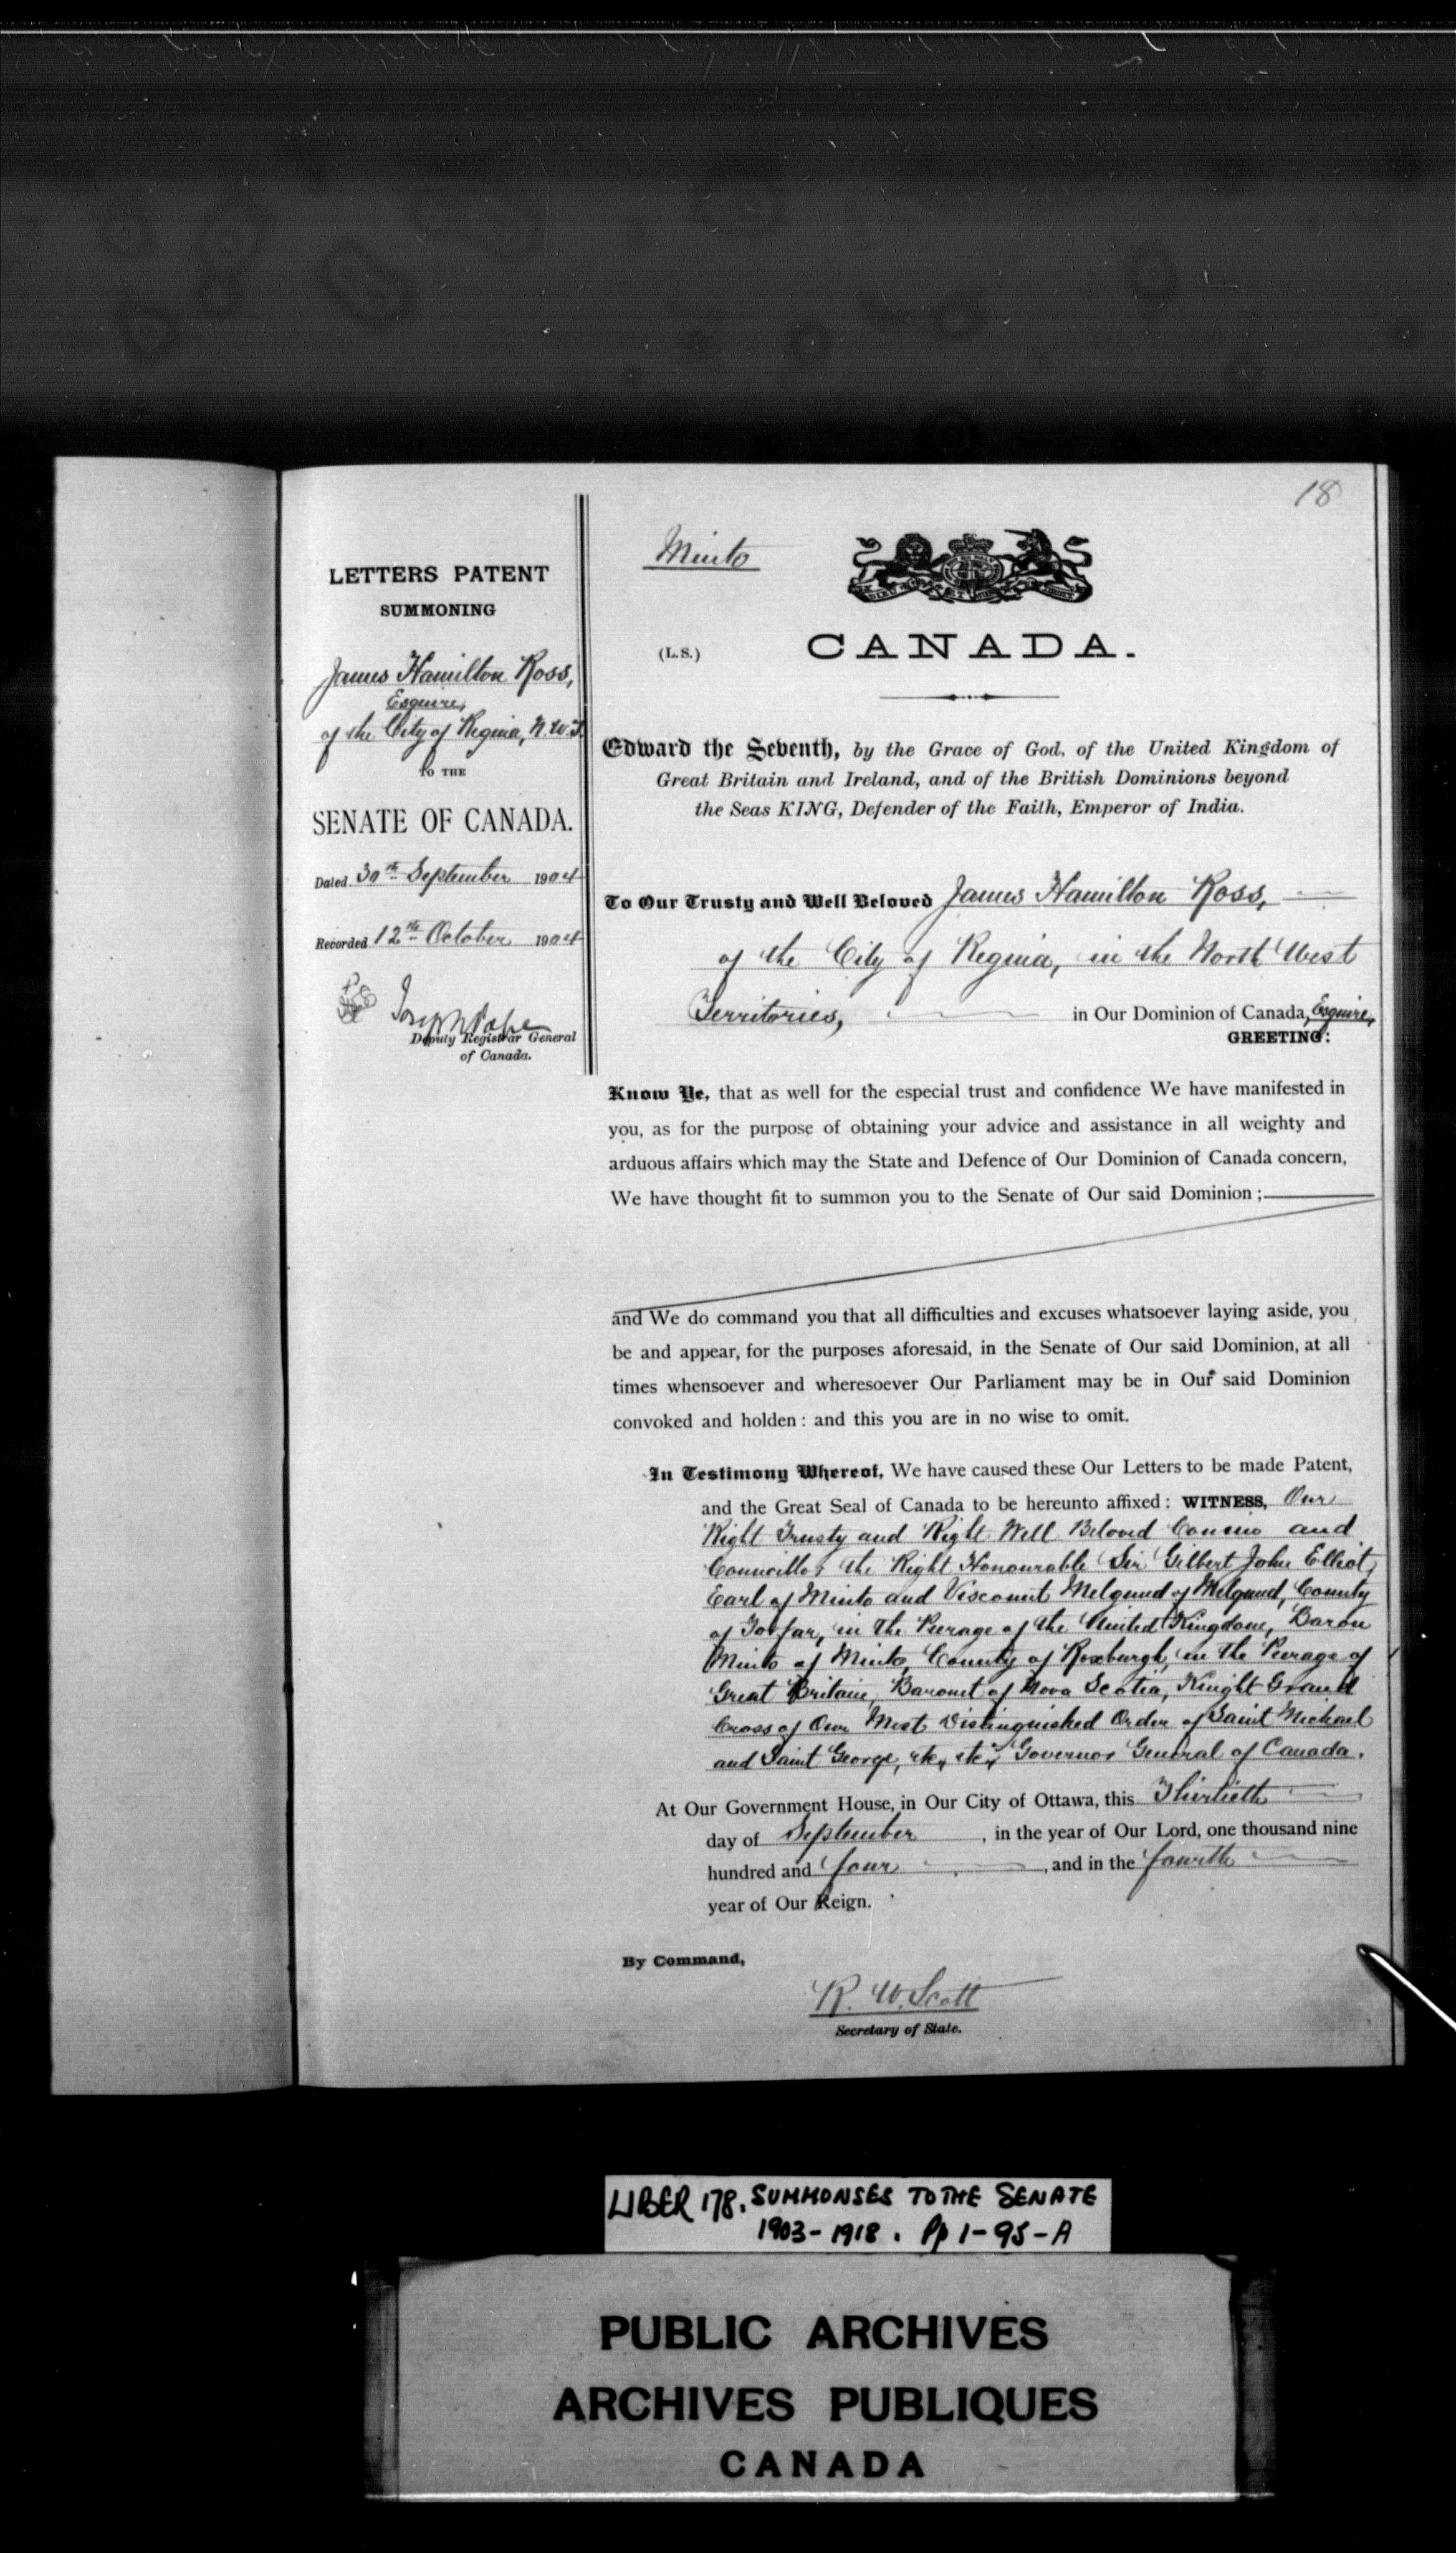 18
LETTERS PATENT
SUMMONING
James Hamilton Ross,
Esquire,
of the City of Regina, N.W.T.
TO THE
SENATE OF CANADA.
Dated 30th September 1904
Recorded 12th October 1904
Joseph Pope
Deputy Registrar General
of Canada.
Minto
(L.S.)
CANADA.
Edward the Seventh, by the Grace of God, of the United Kingdom of
Great Britain and Ireland, and of the British Dominions beyond
the Seas KING, Defender of the Faith, Emperor of India.
To Our Trusty and Well Beloved James Hamilton Ross,
of the City of Regina, in the North West
Territories, in Our Dominion of Canada, Esquire,
GREETING:
Know Ye, that as well for the especial trust and confidence We have manifested in
you, as for the purpose of obtaining your advice and assistance in all weighty and
arduous affairs which may the State and Defence of Our Dominion of Canada concern,
We have thought fit to summon you to the Senate of Our said Dominion ;
and We do command you that all difficulties and excuses whatsoever laying aside, you
be and appear, for the purposes aforesaid, in the Senate of Our said Dominion, at all
times whensoever and wheresoever Our Parliament may be in Our said Dominion
convoked and holden : and this you are in no wise to omit.
In Testimony Whereof, We have caused these Our Letters to be made Patent,
and the Great Seal of Canada to be hereunto affixed : WITNESS, Our
Right Trusty and Right Well Beloved Cousin and
Councillor the Right Honourable Sir Gilbert John Elliot,
Earl of Minto and Viscount Melgund of Melgund, County
of Forfar, in the Peerage of the United Kingdom, Baron
Minto of Minto, County of Roxburgh, in the Peerage of
Great Britain, Baronet of Nova Scotia, Knight Grand
Cross of Our Most Distinguished Order of Saint Michael
and Saint George, etc., etc., Governor General of Canada.
At Our Government House, in Our City of Ottawa, this Thirtieth
day of September, in the year of Our Lord, one thousand nine
hundred and four, and in the fourth
year of Our Reign.
By Command,
R. W. Scott
Secretary of State.
LIBER 178. SUMMONSES TO THE SENATE
1903-1918. Pp 1-95-A
PUBLIC ARCHIVES
ARCHIVES PUBLIQUES
CANADA